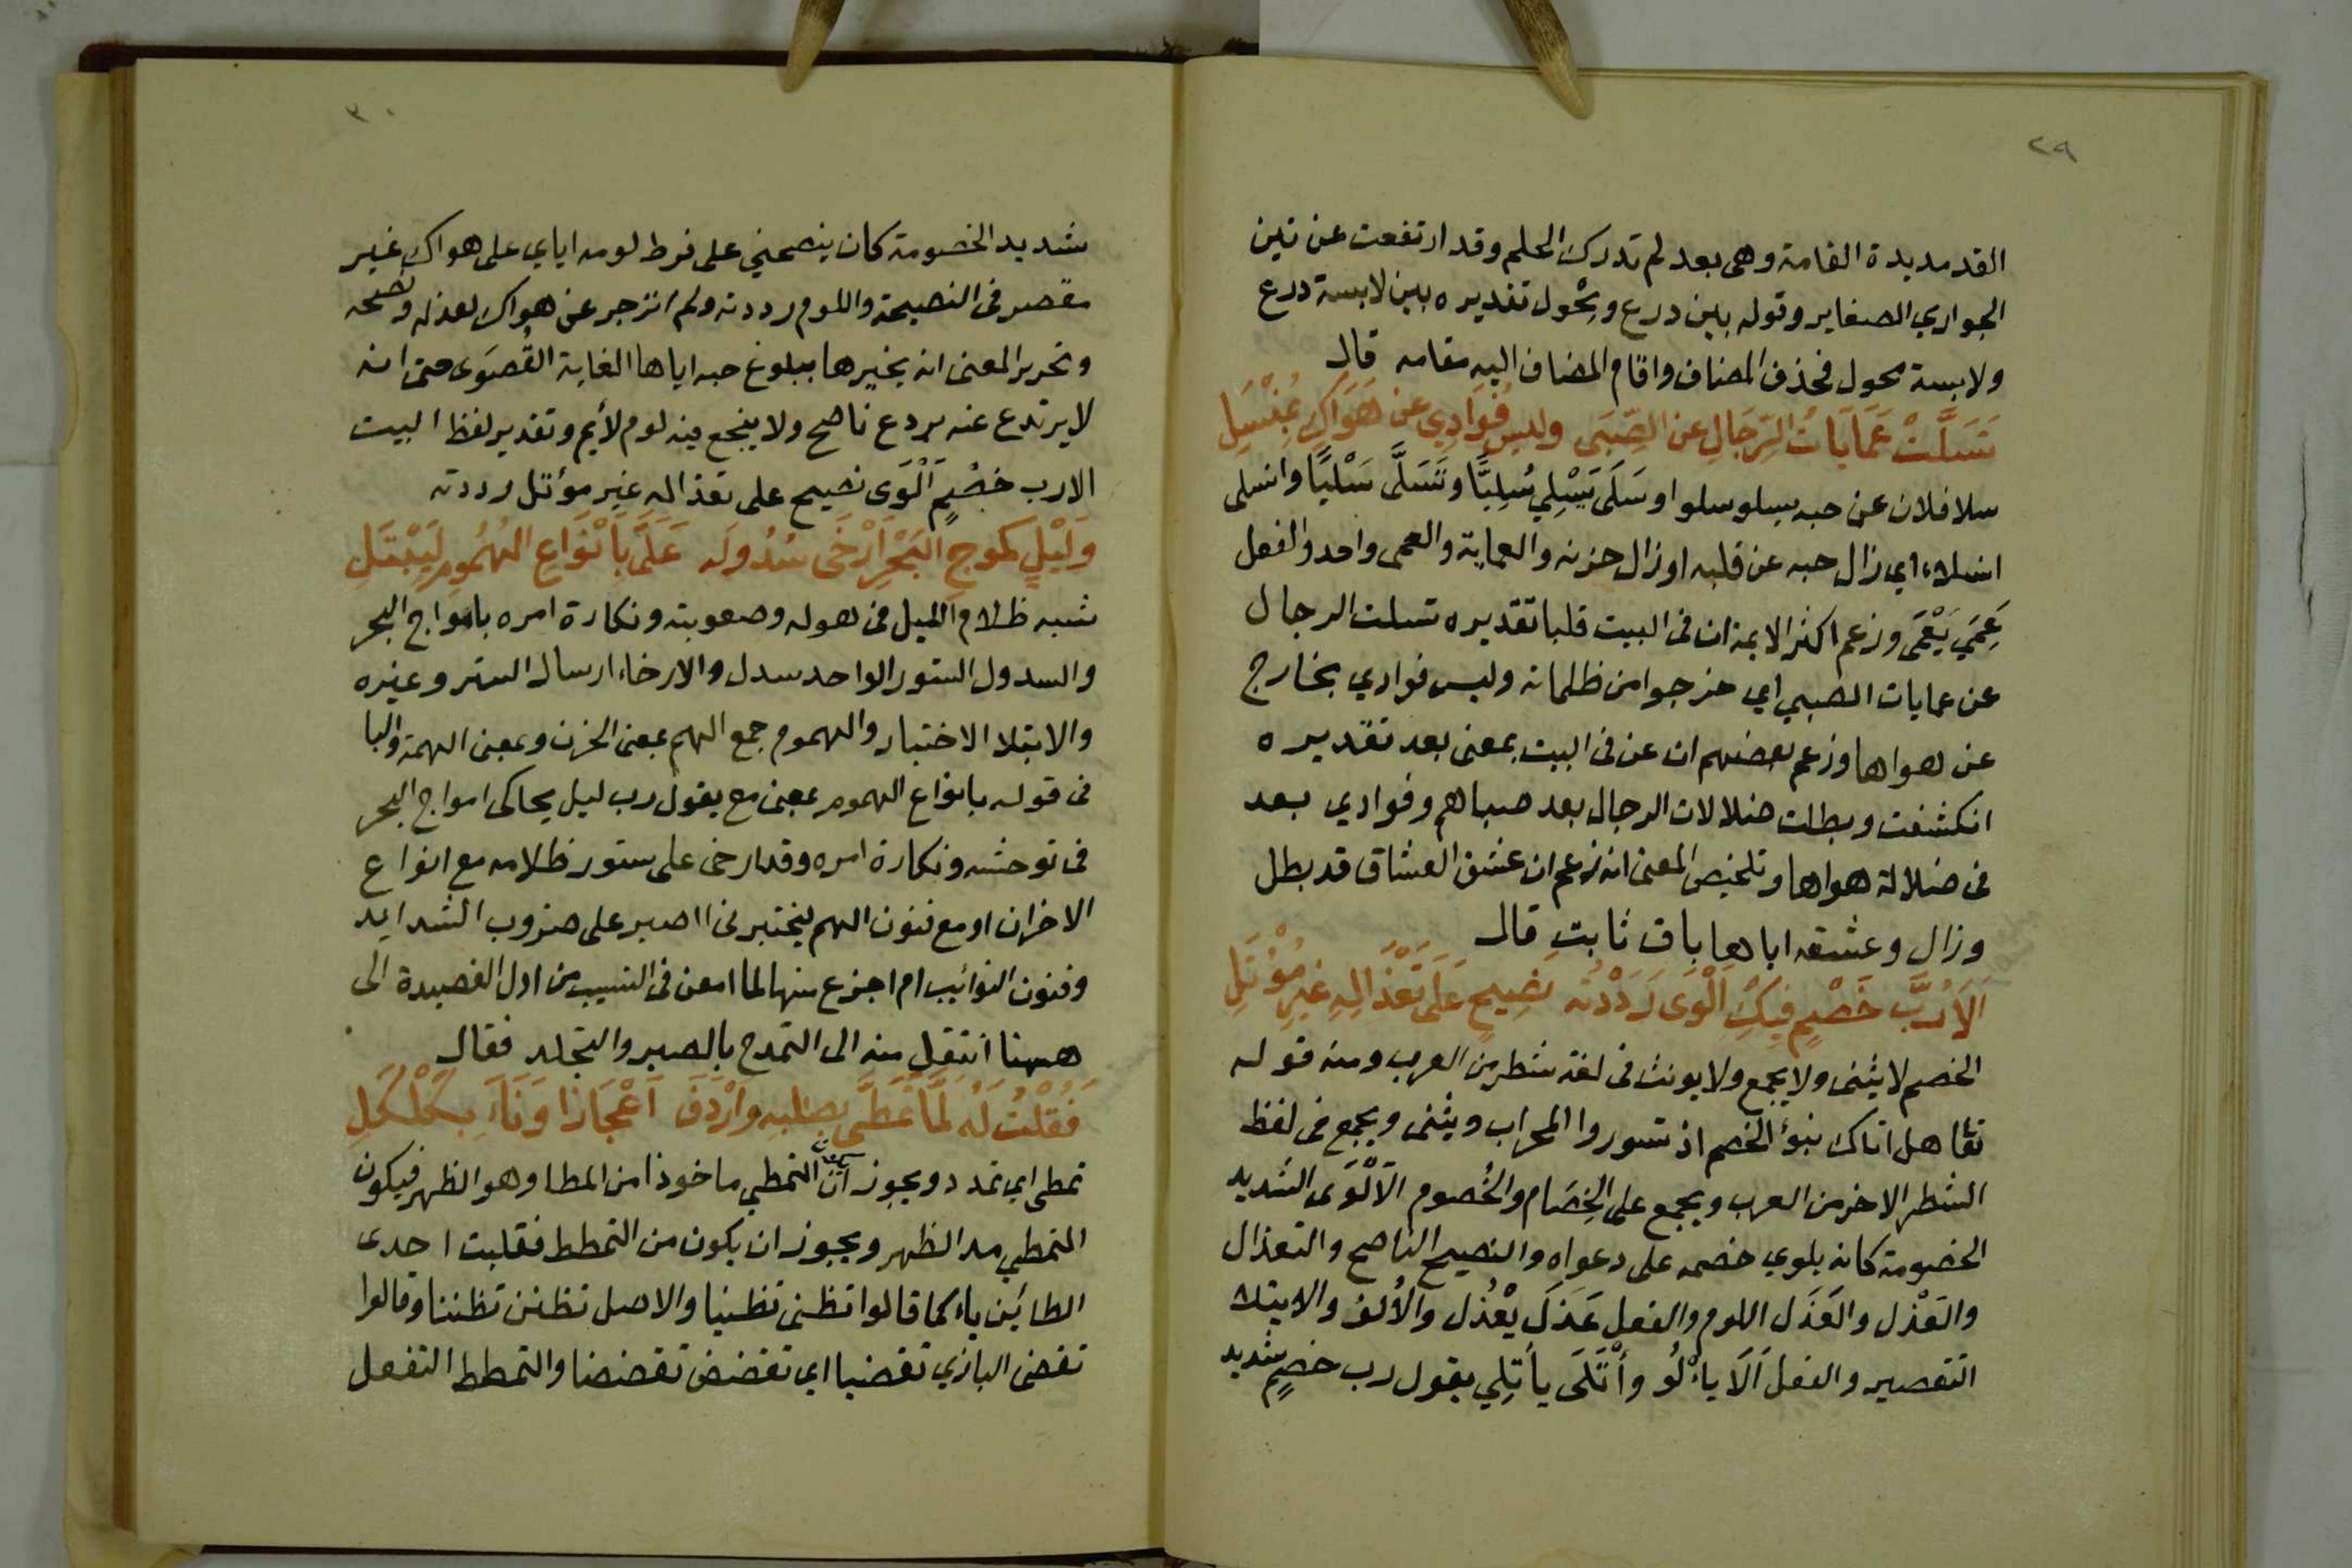 ٢٩
القد مديدة القامة وهى بعد لم تدرك الحلم وقد ارتفعت عن سن
الجواري الصغاير وقوله بين درع ومِجْول تقديره بين لابسة درع
ولابسة مجول فحذف المضاف واقام المضاف اليه مقامه قال
تَسَلَّتْ عَمَايَاتُ الرِّجَالِ عن الصِّبَى وليس فُوَادِي عن هَوَاكِ بمُنْسَلِ
سلا فلان عن حبه يسلو سلوا وسَلَى يَسْلِي سُلِيًّا وتَسَلَّى سَلْيًا وانسلى
انسلاء اي زال حبه عن قلبه او زال حزنه والعماية والعمى واحد والفعل
عَمِيَ يَعْمَى وزعم اكثر الايمة ان فى البيت قلبا تقديره تسلت الرجال
عن عمايات الصبي اي خرجوا من ظلماته وليس فوادي بخارج
عن هواها وزعم بعضهم ان عن فى البيت بمعنى بعد تقديره
انكشفت وبطلت ضلالات الرجال بعد صباهم وفوادي بعد
فى ضلالة هواها وتلخيص المعنى انه زعم ان عشق العشاق قد بطل
وزال وعشقه اياها باق ثابت قال
اَلَا رُبَّ خَصْمٍ فِيكِ اَلْوَى رَدَدْتُه نَصِيحٍ عَلَى تَعْذَالِهِ غيرِ مُؤْتَلِ
الخصم لا يثنى ولا يجمع ولا يونث فى لغة شطر من العرب ومنه قوله
تعا هل اتاك نبؤ الخصم اذ تسوروا المحراب ويثنى ويجمع فى لفظ
الشطر الاخر من العرب ويجمع على الخِصَام والخُصوم الاَلْوَى الشديد
الخصومة كانه يلوي خصمه على دعواه والنصيح الناصح والتعذال
والعَذْل والعَذَل اللوم والفعل عَذَلَ يعْذُل والاُلو والايتلا
التقصير والفعل اَلَا ياْلُو وأْتَلَى يأتِلي يقول رب خصمٍ شديد
٣٠
شديد الخصومة كان ينصحني على فرط لومه اياي على هواك غير
مقصر فى النصيحة واللوم رددته ولم انزجر عن هواك بعذله ونصحه
وتحرير المعنى انه يخبرها ببلوغ حبه اياها الغاية القُصْوَى حتى انه
لا يرتدع عنه بردع ناصح ولا ينجع فيه لوم لأيم وتقدير لفظ البيت
الا رب خصْمٍ اَلْوَى نصيح على تعذاله غير مؤتل رددته
وَلَيْلٍ كموجِ البَحْرِ اَرْخَى سُدُولَه عَلَىَّ بِاَنْوَاعِ الهُمُومِ لِيَبْتَلِ
شبه ظلام الليل فى هوله وصعوبته ونكارة امره بامواج البحر
والسدول الستور الواحد سدل والارخاء ارسال الستر وغيره
والابتلا الاختبار والهموم جمع الهم بمعنى الحزن وبمعنى الهمة والبا
فى قوله بانواع الهموم بمعنى مع يقول رب ليل يحاكى امواج البحر
فى توحشه ونكارة امره وقد ارخى على ستور ظلامه مع انواع
الاخران او مع فنون الهم ليختبرنى ااصبر على ضروب الشدايد
وفنون النوائب ام اجزع منها لما امعن فى النسيب من اول القصيدة الى
ههنا انتقل منه الى التمدح بالصبر والتجلد فقال
فَقُلْتُ لَهُ لَمَّا تَمَطَّى بصلبِهِ وَاَرْدَفَ اَعْجَازًا وَنَاءَ بِكَلْكَلِ
تمطى اي تمدد ويجوز ان يكون التمطي ماخوذا من المطا وهو الظهر فيكون
التمطي مد الظهر ويجوز ان يكون من التمطط فقلبت احدى
الطائين ياء كما قالوا تظنى تظنيا والاصل تظنن تظننا وقالوا
تقضى البازي تقضيا اي تقضض تقضضا والتمطط التفعل